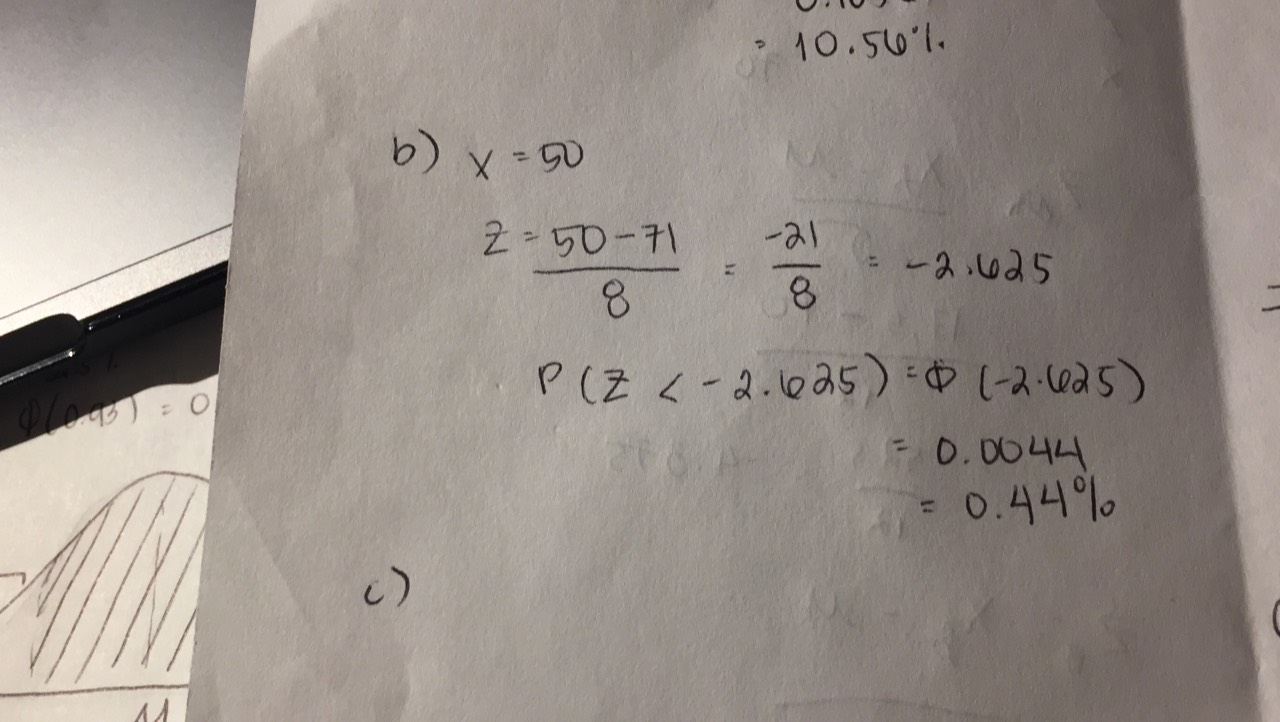 = 10.56%
b) x = 50
Z = 50-71 / 8 = -21 / 8 = -2.625
P(Z < -2.625) = Φ(-2.625)
= 0.0044
= 0.44%
c)
Φ(0.93) = 0